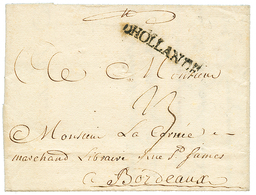 DHOLLANDE
A Monsieur
23
Monsieur La Cornée
marchand Libraire Rue St James
a Bordeaux